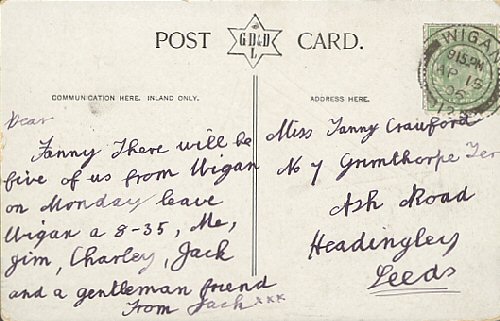 POST CARD.
GD&D
L
COMMUNICATION HERE. INLAND ONLY.
ADDRESS HERE.
WIGAN
915PM
AP 15
06
Dear
Fanny There will be
five of us from Wigan
on Monday leave
Wigan a 8-35, Me,
Jim, Charley, Jack
and a gentleman friend
From Jack xxx
Miss Fanny Crawford
No 7 Grimthorpe Ter
Ash Road
Headingley
Leeds